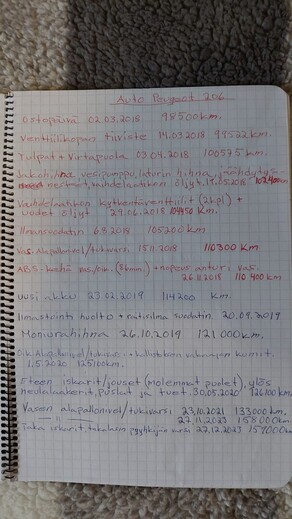 Auto Peugeot 206
Ostopäivä 02.03.2018 98500km.
Venttiilikopan tiiviste 14.03.2018 99522 km.
Tulpat + Virtapuola 03.04.2018 100575 km.
Jakohihna, vesipumppu, laturin hihna, jäähdytys-
nesteet, vaihdelaatikon öljyt. .05.2018 102400km
Vaihdelaatikon kytkentäventtiilit (2kpl) +
uudet öljyt 29.06.2018 104450 km.
Ilmansuodatin 6.8.2018 105200 km
Vas. Alapallonivel/tukivarsi. 15.11.2018 110300 km
ABS-kehä (8kmm.) + nopeus anturi vas.
26.11.2018 110 400 km
Uusi akku 23.02.2019 114200 km.
Ilmastointi huolto + raitisilma suodatin 20.09.2019
Moniurahihna 26.10.2019 121 000km.
Oik. Alapallonivel/tukivarsi + kallistuksen vakaajan kumit.
1.5.2020 125100km.
Eteen iskarit/jouset (molemmat puolet), ylös
neulalaakerit, puslat ja tuet. 30.05.2020 126100 km.
Vasen alapallonivel/tukivarsi 23.10.2021 133000 km.
— 11 — 27.11.2023 158000 km.
Taka iskarit, takalasin pyyhkijän varsi 22.12.2023 159000km